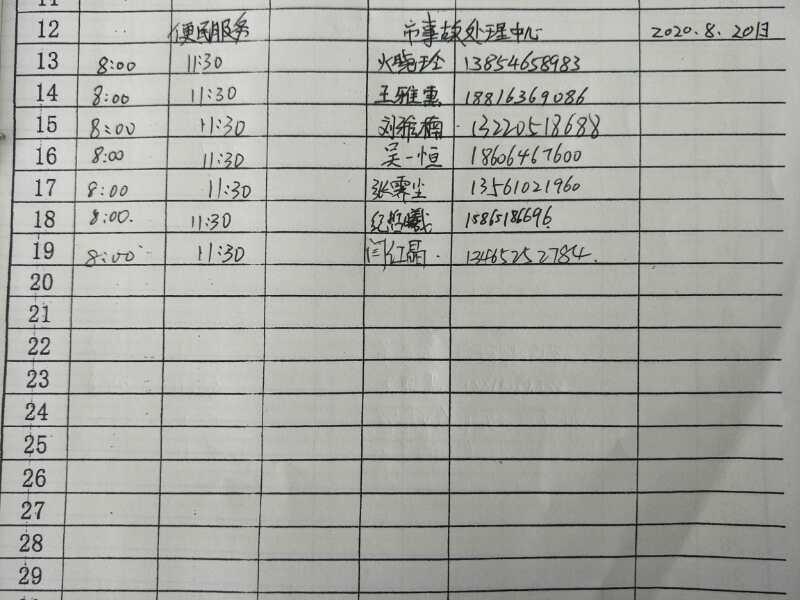 12 便民服务 市事故处理中心 2020.8.20日
13 8:00 11:30 火晓玲 13854658983
14 8:00 11:30 王雅惠 18816369086
15 8:00 11:30 刘雅楠 13220518688
16 8:00 11:30 吴一恒 18606467600
17 8:00 11:30 张霁尘 13561021960
18 8:00. 11:30 纪哲曦 15865186696.
19 8:00 11:30 闫红晶. 13465252784.
20
21
22
23
24
25
26
27
28
29